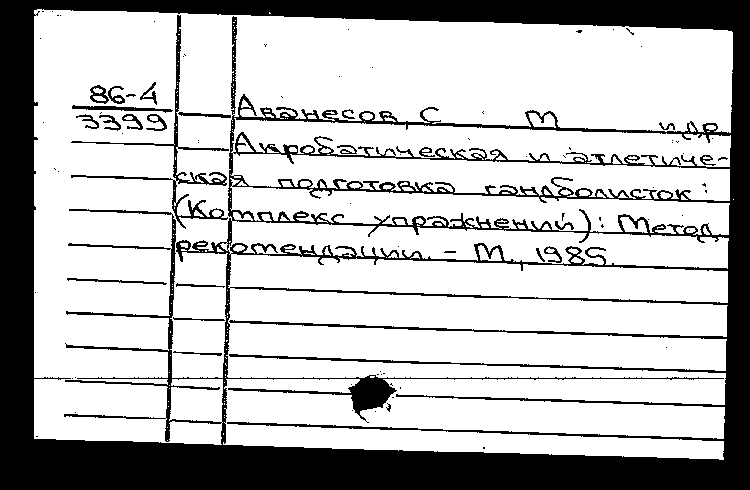 86-4
3399
Аванесов, С М и др
Акробатическая и атлетиче-
ская подготовка гандболисток:
(Комплекс упражнений): Метод.
рекомендации. - М., 1985.